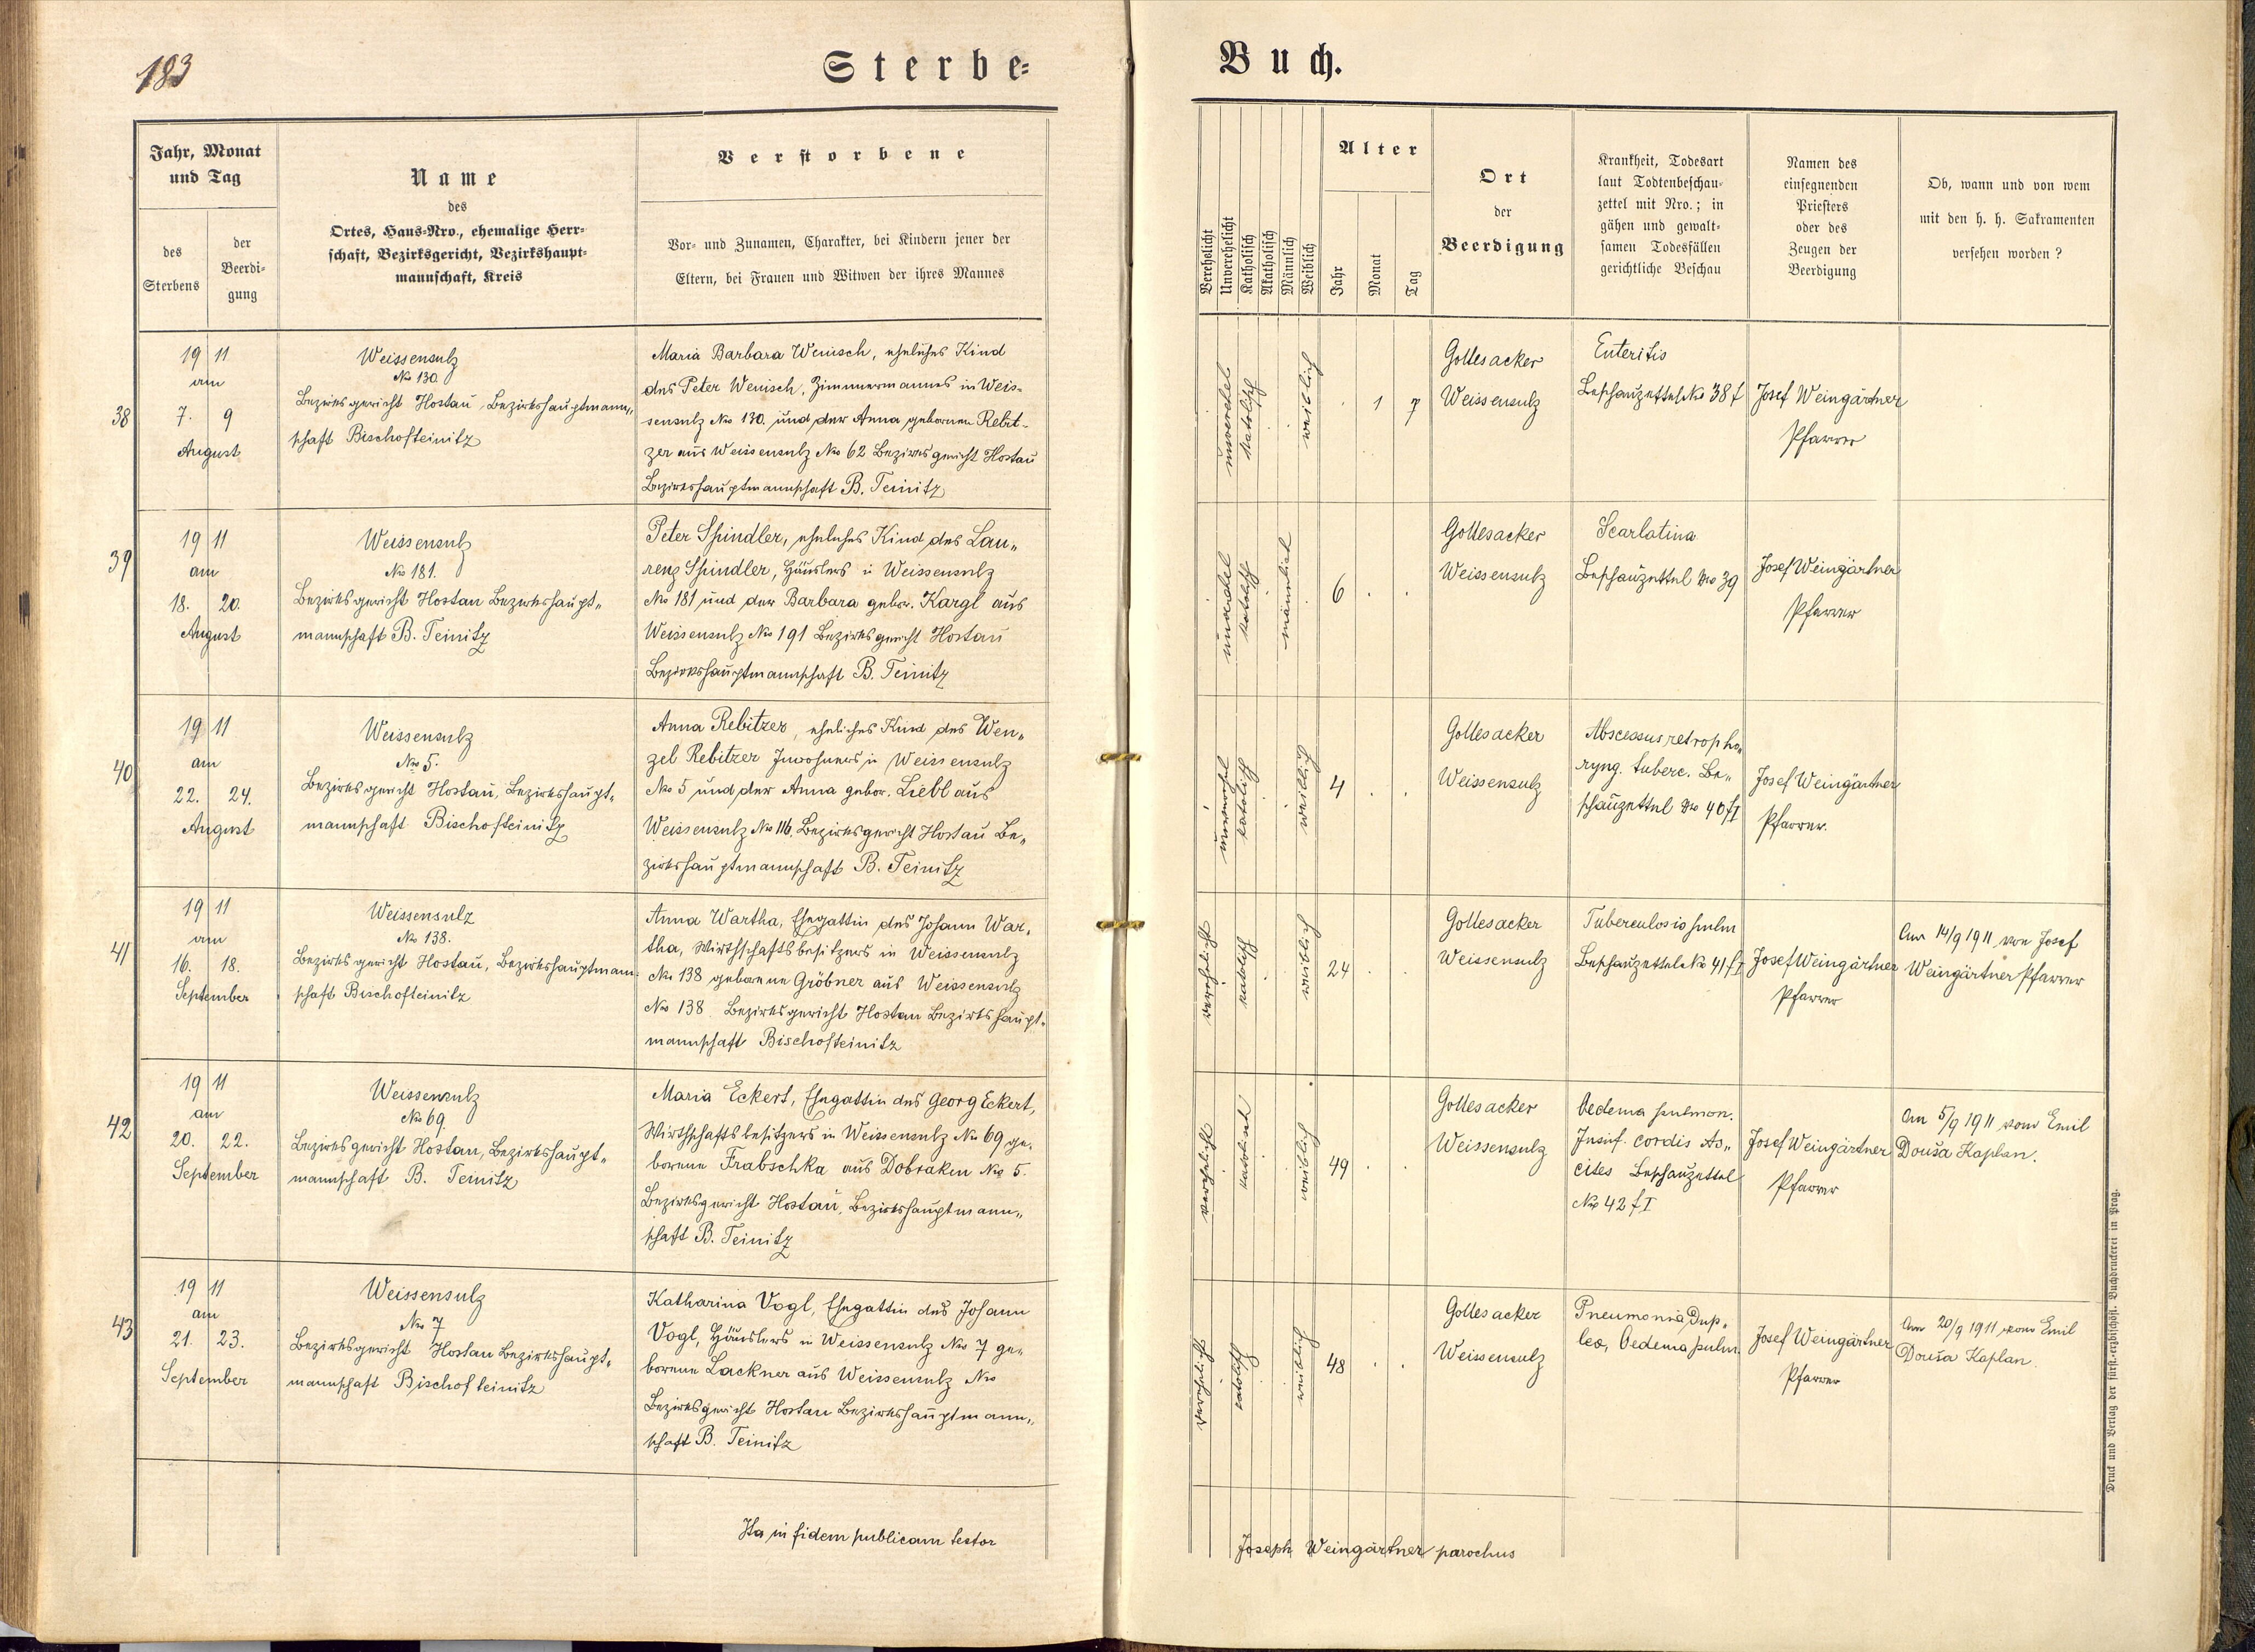 183
Sterbe-
Buch.
Jahr, Monat
und Tag
des
Sterbens
der
Beerdi-
gung
Name
des
Ortes, Haus-Nro., ehemalige Herr-
schaft, Bezirksgericht, Bezirkshaupt-
mannschaft, Kreis
Verstorbene
Vor- und Zunamen, Charakter, bei Kindern jener der
Eltern, bei Frauen und Witwen der ihres Mannes
Verehelicht
Unverehelicht
Katholisch
Akatholisch
Männlich
Weiblich
Alter
Jahr
Monat
Tag
Ort
der
Beerdigung
Krankheit, Todesart
laut Todtenbeschau-
zettel mit Nro.; in
gähen und gewalt-
samen Todesfällen
gerichtliche Beschau
Namen des
einsegnenden
Priesters
oder des
Zeugen der
Beerdigung
Ob, wann und von wem
mit den h. h. Sakramenten
versehen worden?
38
19 11
am
7. 9
August
Weissensulz
No 130
Bezirksgericht Hostau, Bezirkshauptmann„
schaft Bischofteinitz
Maria Barbara Wenisch, eheliches Kind
des Peter Wenisch, Zimmermannes in Weis-
sensulz No 130. und der Anna gebornen Rebit-
zer aus Weissensulz No 62 Bezirksgericht Hostau
Bezirkshauptmannschaft B. Teinitz
unverehel
katolisch
weiblich
1 7
Gottesacker
Weissensulz
Enteritis
Beschauzettel No 38 f
Josef Weingärtner
Pfarrer
39
19 11
am
18. 20.
August
Weissensulz
No 181.
Bezirksgericht Hostau Bezirkshaupt„
mannschaft B. Teinitz
Peter Spindler, eheliches Kind des Lau„
renz Spindler, Häuslers in Weissensulz
No 181 und der Barbara gebor. Kargl aus
Weissensulz No 191 Bezirksgericht Hostau
Bezirkshauptmannschaft B. Teinitz
katolisch
männlich
6
Gottesacker
Weissensulz
Scarlatina
Beschauzettel No 39
Josef Weingärtner
Pfarrer
40
19 11
am
22. 24.
August
Weissensulz
No 5.
Bezirksgericht Hostau, Bezirkshaupt„
mannschaft Bischofteinitz
Anna Rebitzer, eheliches Kind des Wen„
zel Rebitzer Inwohners in Weissensulz
No 5 und der Anna gebor. Liebl aus
Weissensulz No 116 Bezirksgericht Hostau Be„
zirkshauptmannschaft B. Teinitz
unverehel
katolisch
weiblich
4
Gottesacker
Weissensulz
Abscessus retropha„
ryng. tuberc. Be„
schauzettel No 40 f I
Josef Weingärtner
Pfarrer.
41
19 11
am
16. 18.
September
Weissensulz
No 138.
Bezirksgericht Hostau, Bezirkshauptmann-
schaft Bischofteinitz
Anna Wartha, Ehegattin des Johann War„
tha, Wirthschaftsbesitzers in Weissensulz
No 138 geborene Gröbner aus Weissensulz
No 138 Bezirksgericht Hostau Bezirkshaupt„
mannschaft Bischofteinitz
verehelicht
katolisch
weiblich
24
Gottesacker
Weissensulz
Tuberculosis pulm
Beschauzettel No 41 f I
Josef Weingärtner
Pfarrer
Am 14/9 1911 von Josef
Weingärtner Pfarrer
42
19 11
am
20. 22.
September
Weissensulz
No 69
Bezirksgericht Hostau, Bezirkshaupt„
mannschaft B. Teinitz
Maria Eckert, Ehegattin des Georg Eckert,
Wirthschaftsbesitzers in Weissensulz No 69 ge„
borene Frabschka aus Dobraken No 5.
Bezirksgericht Hostau, Bezirkshauptmann„
schaft B. Teinitz
verehelicht
katolisch
weiblich
49
Gottesacker
Weissensulz
Oedema pulmon.
Insuf. cordis As„
cites Beschauzettel
No 42 f I
Josef Weingärtner
Pfarrer
Am 5/9 1911 vom Emil
Douša Kaplan.
43
19 11
am
21. 23.
September
Weissensulz
No 7
Bezirksgericht Hostau Bezirkshaupt„
mannschaft Bischofteinitz
Katharina Vogl, Ehegattin des Johann
Vogl, Häuslers in Weissensulz No 7 ge„
borene Lackner aus Weissensulz No
Bezirksgericht Hostau Bezirkshauptmann„
schaft B. Teinitz
verehelicht
katolisch
weiblich
48
Gottesacker
Weissensulz
Pneumonia Dup„
lex, Oedema pulm.
Josef Weingärtner
Pfarrer
Am 20/9 1911 vom Emil
Douša Kaplan.
Ita in fidem publicam testor
Joseph Weingärtner parochus
Druck und Verlag der fürst.-erzbischöfl. Buchdruckerei in Prag.